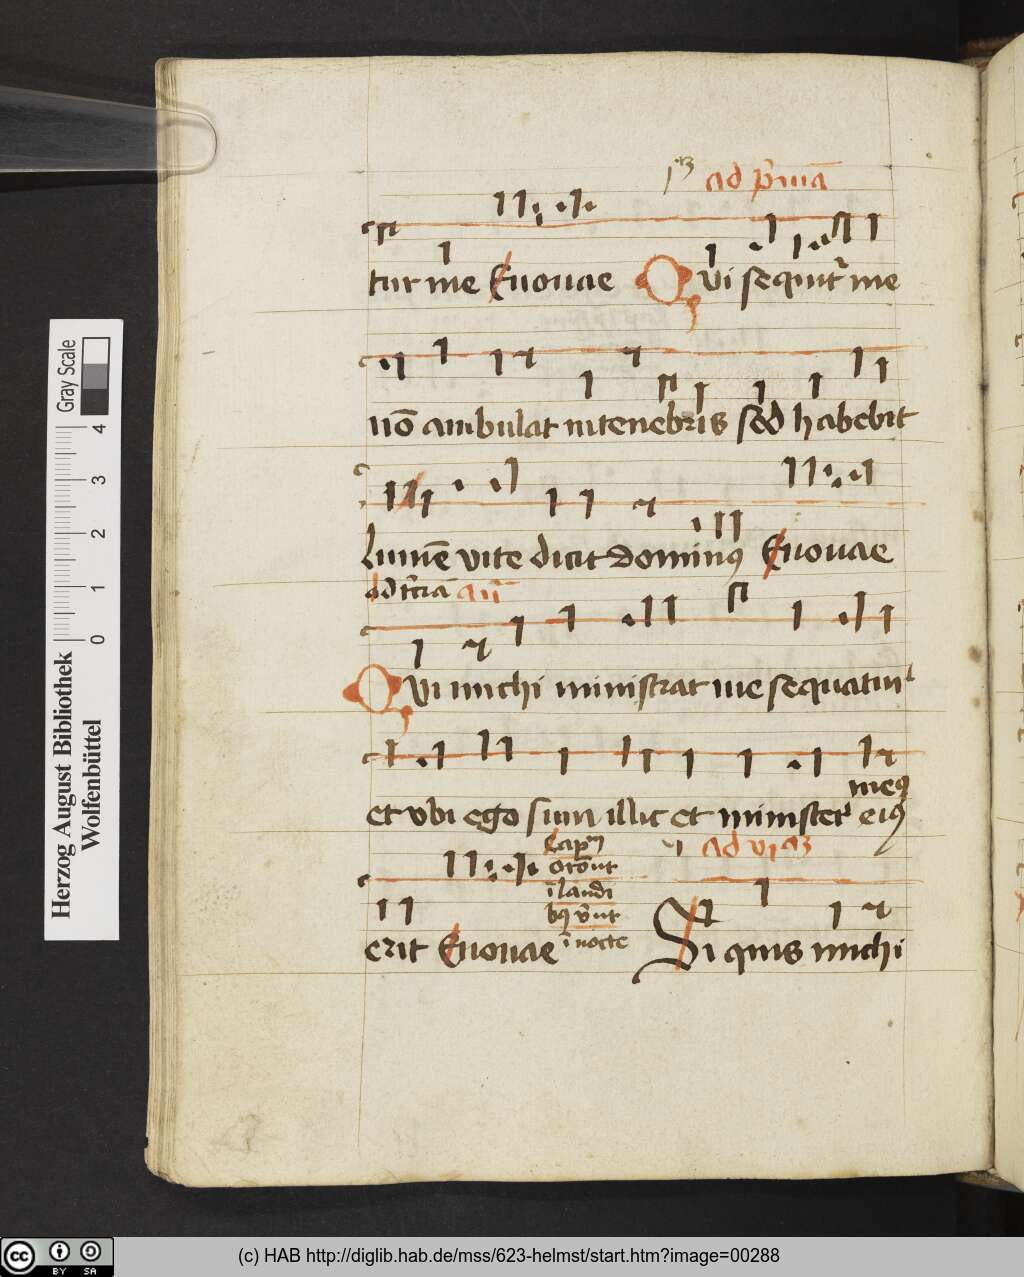 ad p̄mā
tur me Euouae Qvi sequit᷑ me
nō ambulat in tenebris sed habebit
lumē vite dicit dominꝰ Euouae
ad t̄ciā an̄
Qvi michi ministrat me sequatur
et vbi ego sum illic et minister
meꝰ
erit Euouae
ī nocte
ad vjā
Si quis michi
Gray Scale
0 1 2 3 4
Herzog August Bibliothek
Wolfenbüttel
cc BY SA
(c) HAB http://diglib.hab.de/mss/623-helmst/start.htm?image=00288